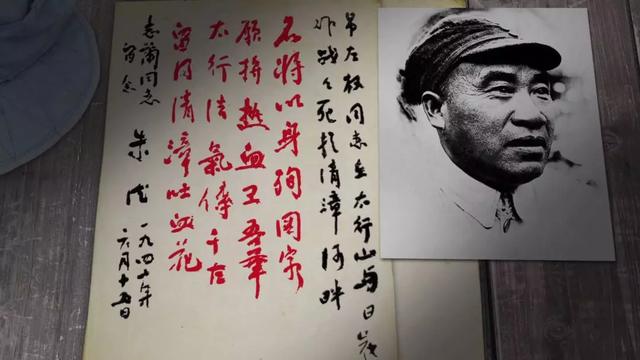 吊左权同志在太行山与日寇
作战々死於清漳河畔
名将以身殉国家
願拚热血卫吾華
太行浩氣傳千古
留得清漳吐血花
志蘭同志
留念
朱德
一九四十年
六月十五日